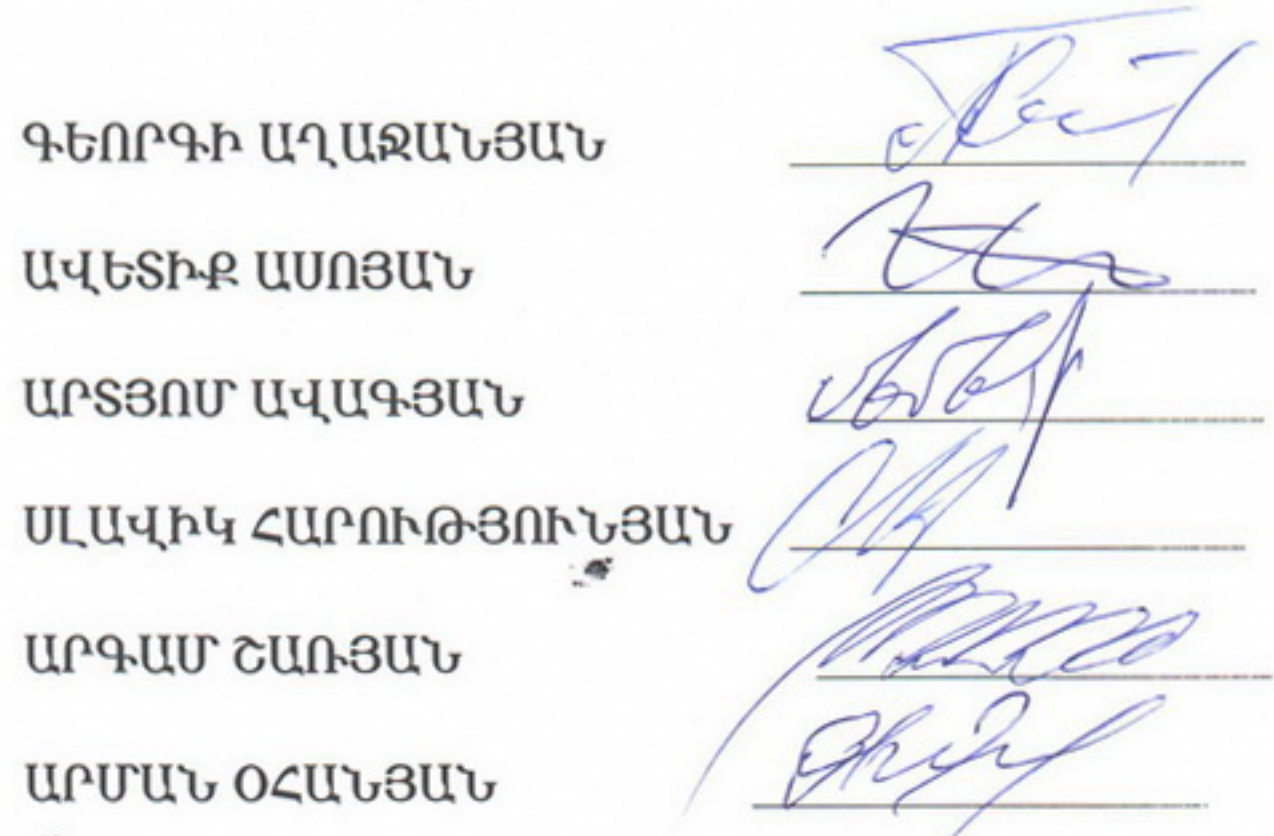 ԳԵՈՐԳԻ ԱՂԱՋԱՆՅԱՆ
ԱՎԵՏԻՔ ԱՍՈՅԱՆ
ԱՐՏՅՈՄ ԱՎԱԳՅԱՆ
ՍԼԱՎԻԿ ՀԱՐՈՒԹՅՈՒՆՅԱՆ
ԱՐԳԱՄ ՇԱՌՅԱՆ
ԱՐՄԱՆ ՕՀԱՆՅԱՆ